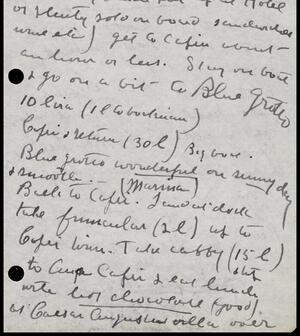 or plenty sold on boat sandwiches
wine etc) get to Capri about
an hour or less. Stay on boat
& go on a bit to Blue Grotto
10 lira (1 l to boatman)
Capri & return (30 l) Big boat.
Blue grotto wonderful on sunny day
& smooth (Marina)
Back to Capri. dock
take funicular (2 l) up to
Capri town. Take cabby (15 l)
to Capri & eat lunch
with hot chocolate (good)
at Caesar Augustus villa over